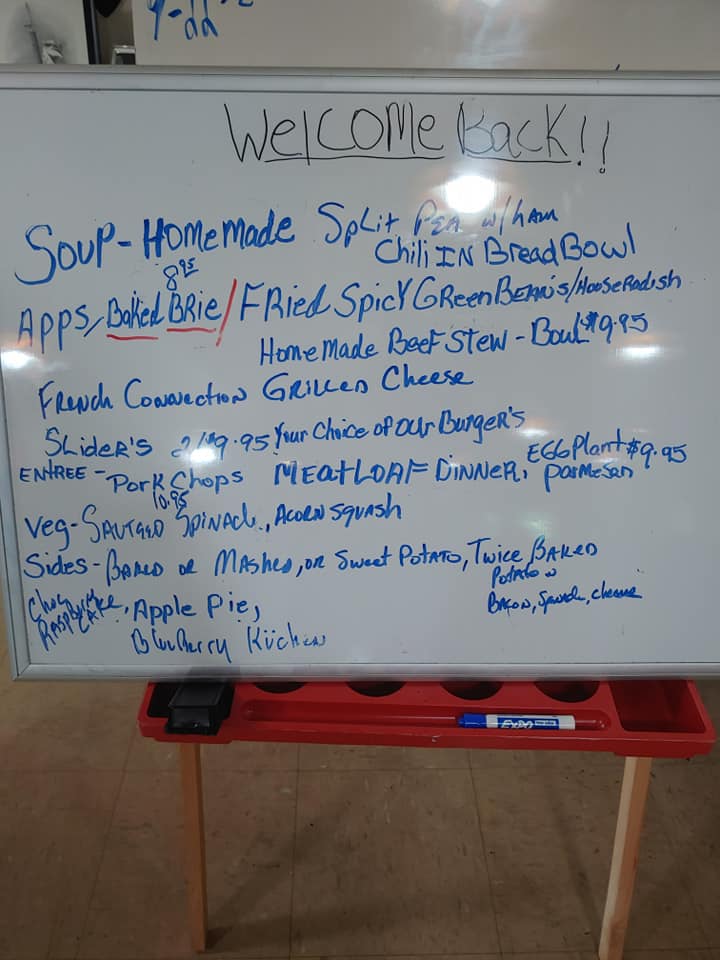 9-22
WelCOMe Back!!
Soup-Homemade Split Pea w/ham
Chili IN Bread Bowl
8 95
Apps, Baked BRie/FRied Spicy Green Bean's/HooseRadish
HomeMade Beef Stew - Bowl $9.95
French Connection Grilled Cheese
Slider's 2/$9.95 Your Choice of our Burger's
ENTREE - Pork Chops MEatLOAF DINNER, EGGPlant $9.95
10.95 Parmesan
Veg-Sauteed Spinach, Acorn Squash
Sides-Baked or Mashed, or Sweet Potato, Twice Baked
Potato w
Bacon, Spinach, cheese
Choc
Raspberry Cake, Apple Pie,
Blueberry Küchen
EXPO